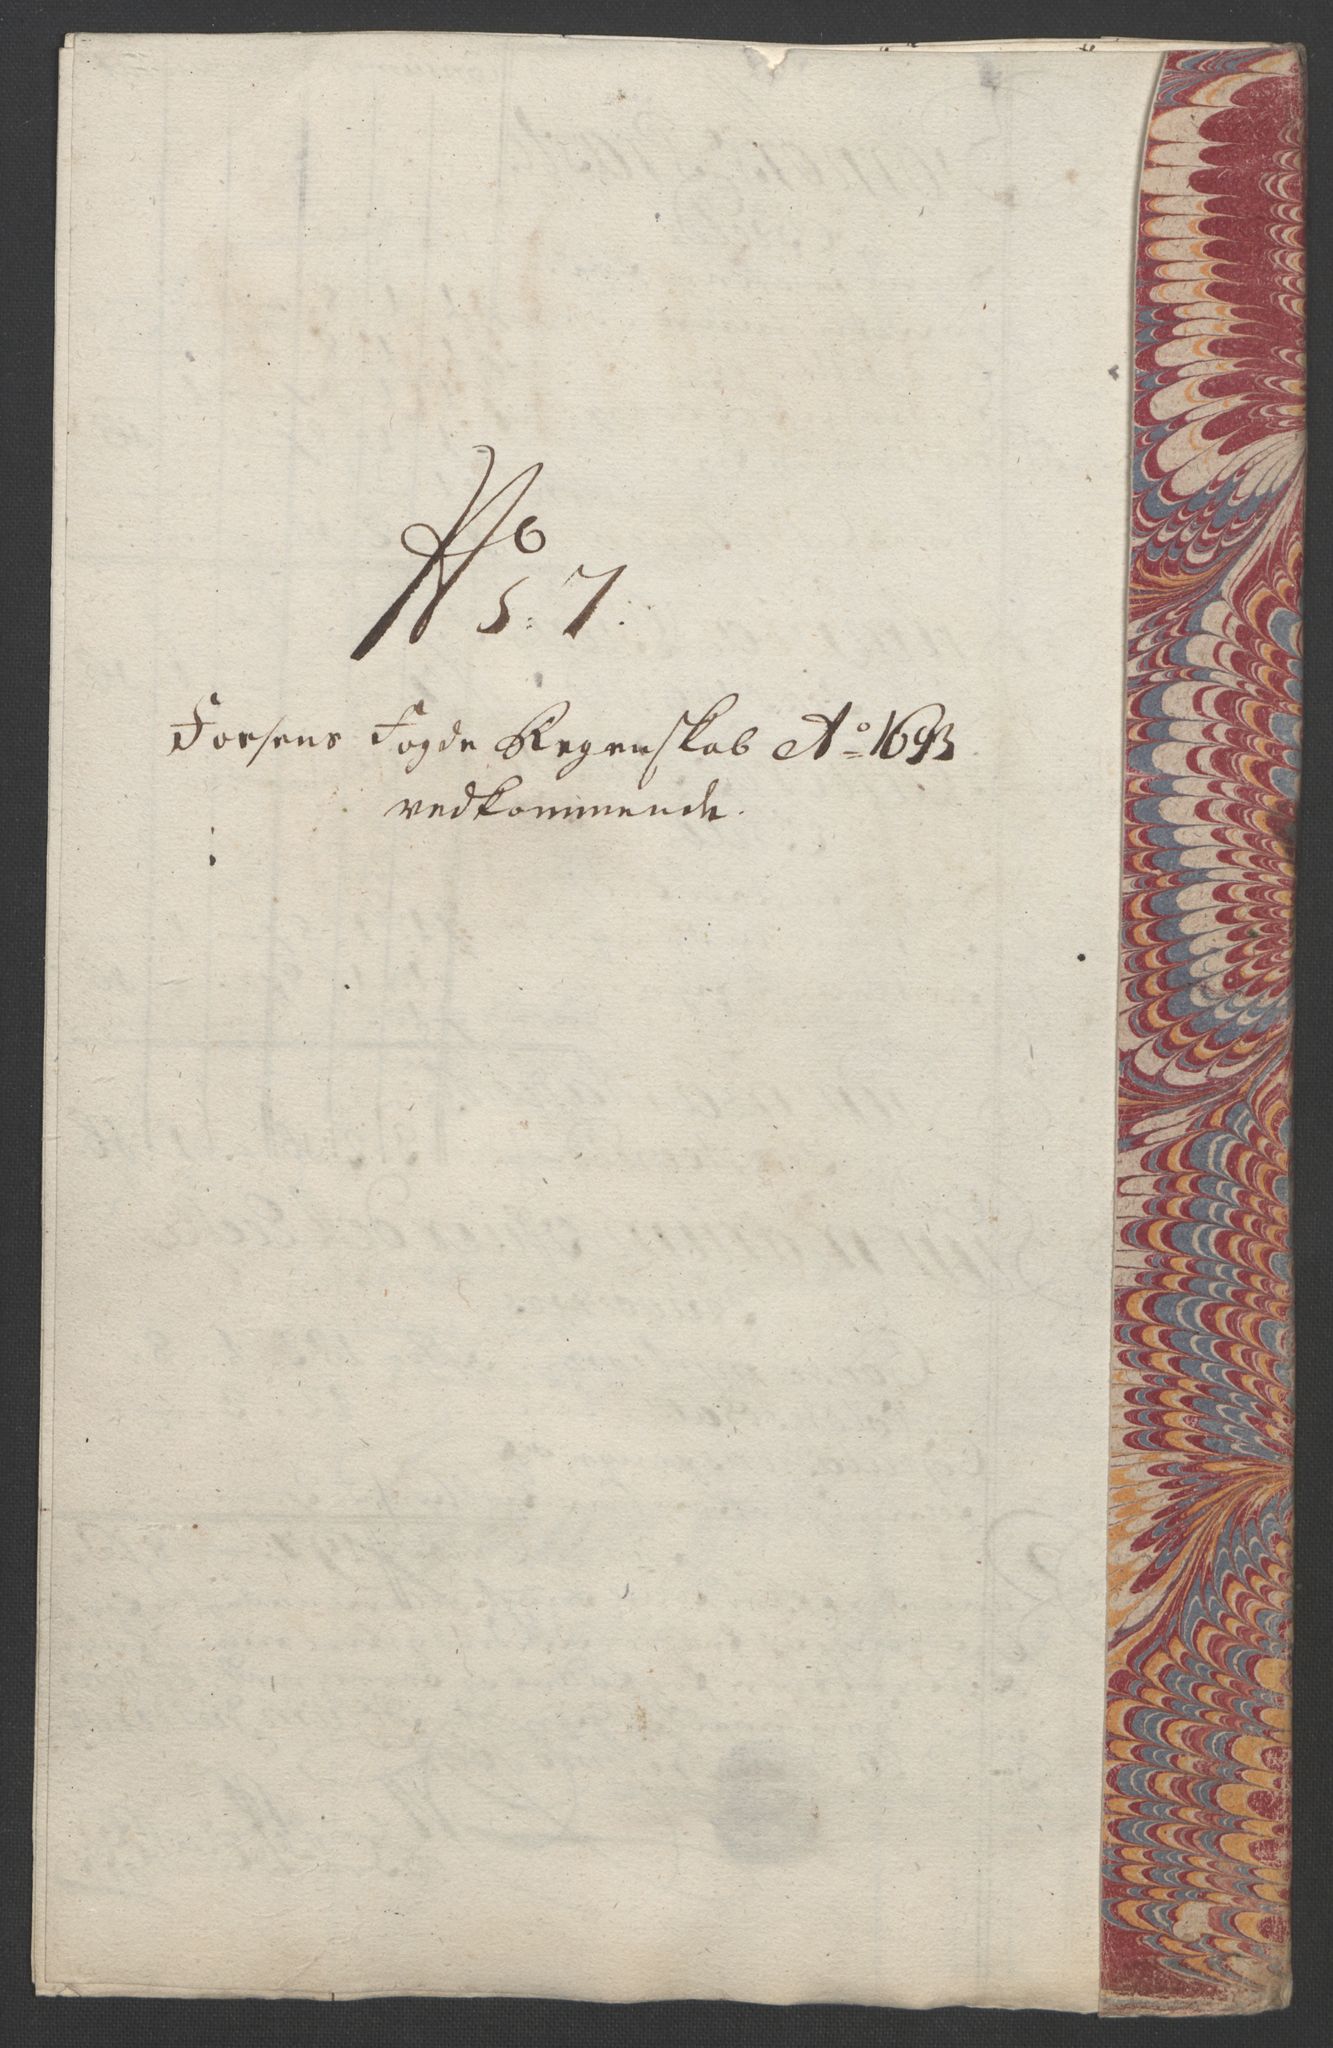 No 5: 7:
Fosens Fogde Regenskab Ao 1693
vedkommende.